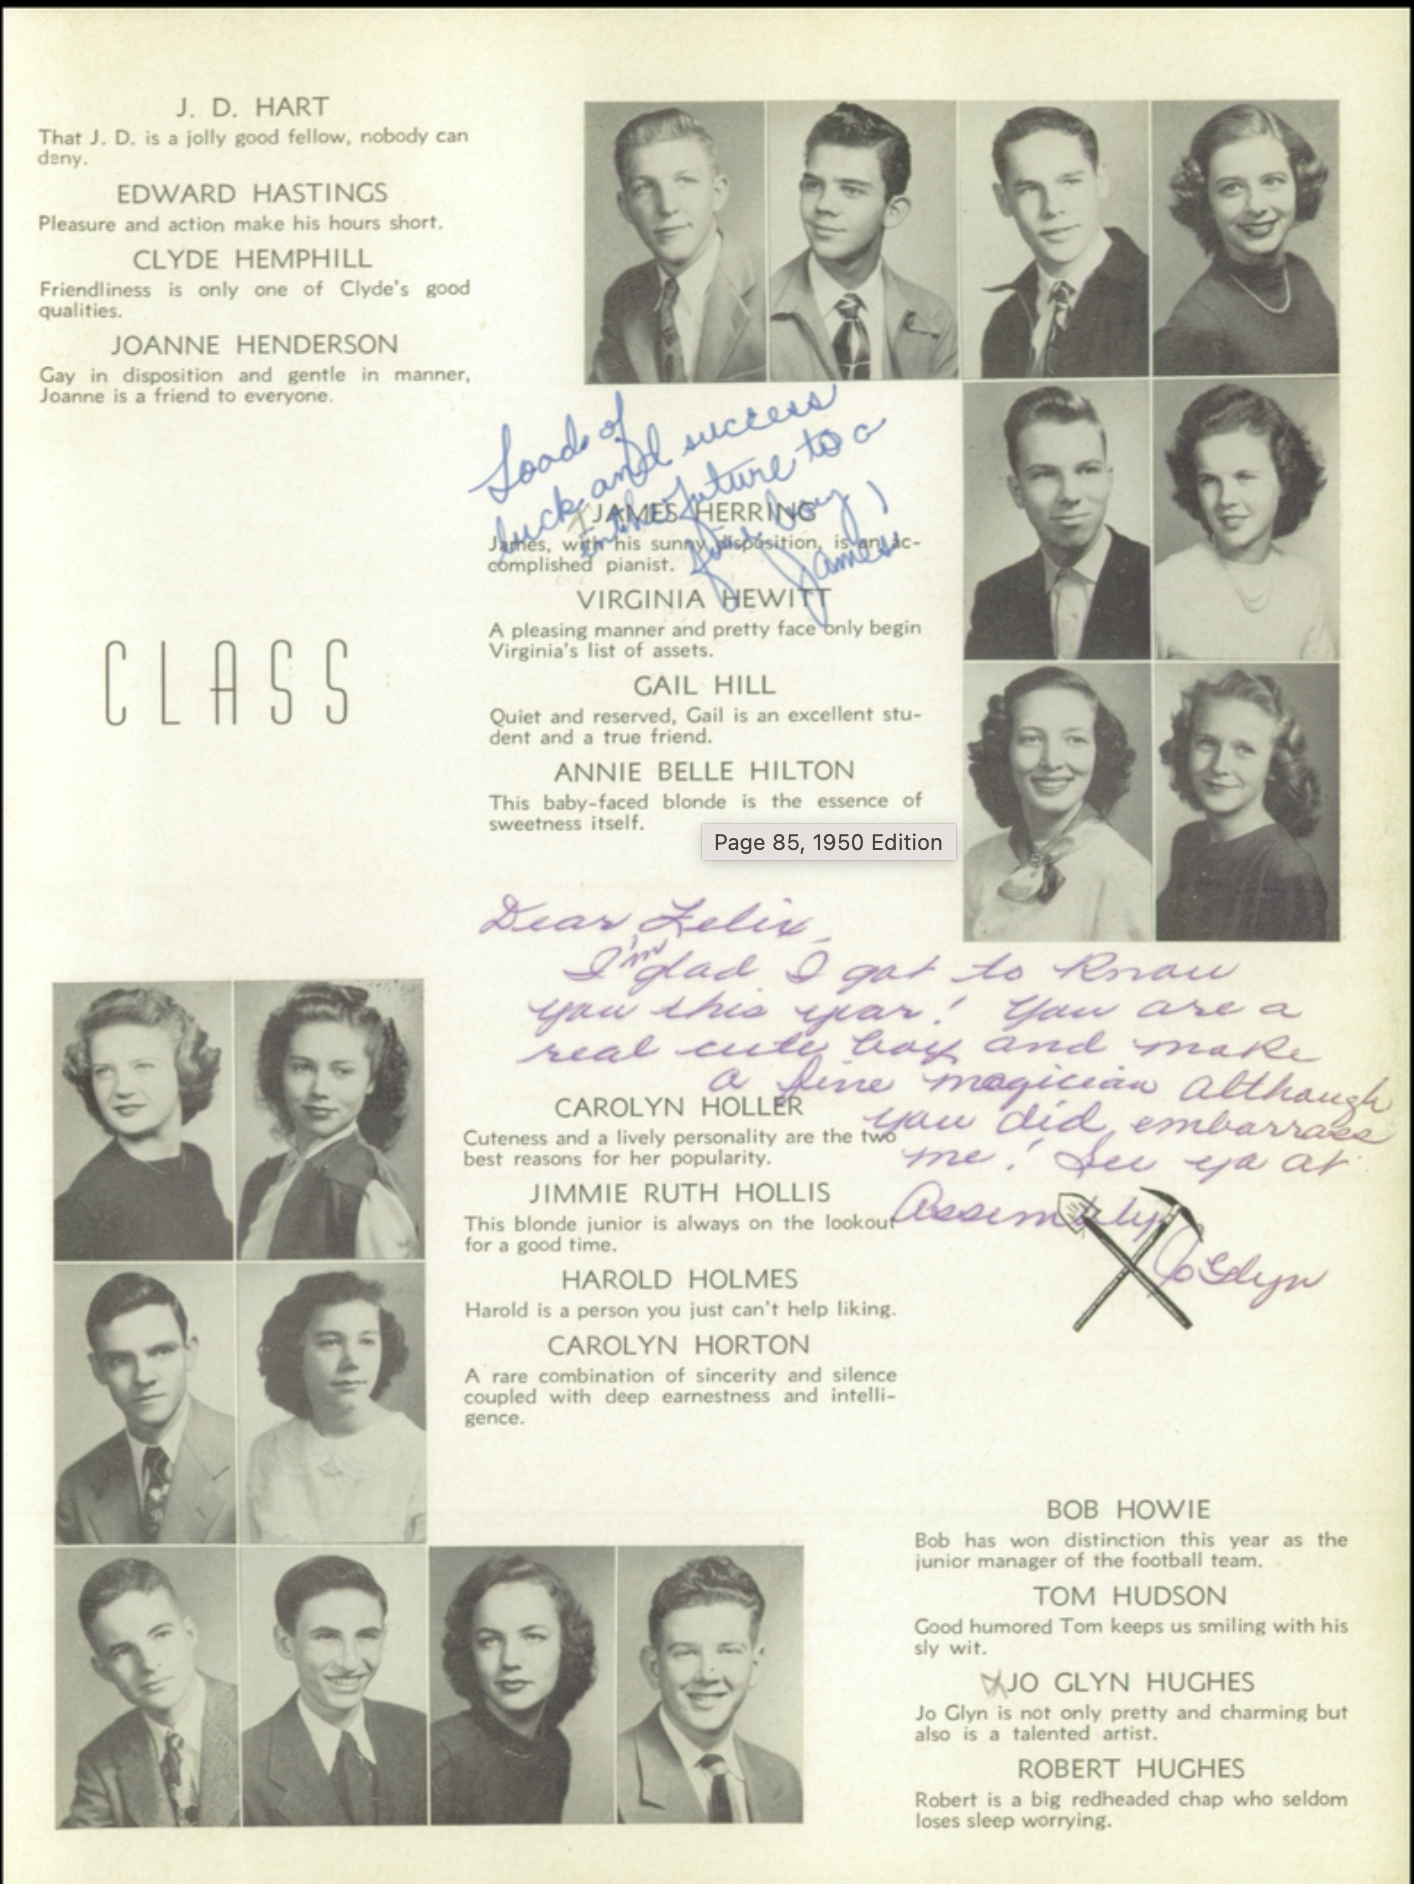 J. D. HART
That J. D. is a jolly good fellow, nobody can
deny.
EDWARD HASTINGS
Pleasure and action make his hours short.
CLYDE HEMPHILL
Friendliness is only one of Clyde's good
qualities.
JOANNE HENDERSON
Gay in disposition and gentle in manner,
Joanne is a friend to everyone.
Loads of
luck and success
in the future to a
boy!
James
JAMES HERRING
James, with his sunny disposition, is an ac-
complished pianist.
VIRGINIA HEWITT
A pleasing manner and pretty face only begin
Virginia's list of assets.
GAIL HILL
Quiet and reserved, Gail is an excellent stu-
dent and a true friend.
ANNIE BELLE HILTON
This baby-faced blonde is the essence of
sweetness itself.
CLASS
Page 85, 1950 Edition
Dear Felix,
I'm glad I got to know
you this year! You are a
real cute boy and make
a fine magician although
you did embarrass
me! See ya at
Assembly
Jo Glyn
CAROLYN HOLLER
Cuteness and a lively personality are the two
best reasons for her popularity.
JIMMIE RUTH HOLLIS
This blonde junior is always on the lookout
for a good time.
HAROLD HOLMES
Harold is a person you just can't help liking.
CAROLYN HORTON
A rare combination of sincerity and silence
coupled with deep earnestness and intelli-
gence.
BOB HOWIE
Bob has won distinction this year as the
junior manager of the football team.
TOM HUDSON
Good humored Tom keeps us smiling with his
sly wit.
JO GLYN HUGHES
Jo Glyn is not only pretty and charming but
also is a talented artist.
ROBERT HUGHES
Robert is a big redheaded chap who seldom
loses sleep worrying.